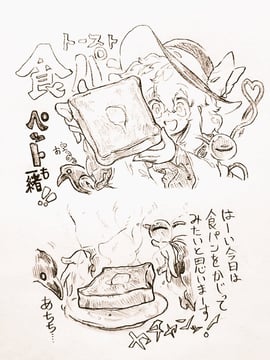 トースト
食パン
ペットも
一緒!!
はーい今日は
食パンをかじって
みたいと思いまーす!
あちち…